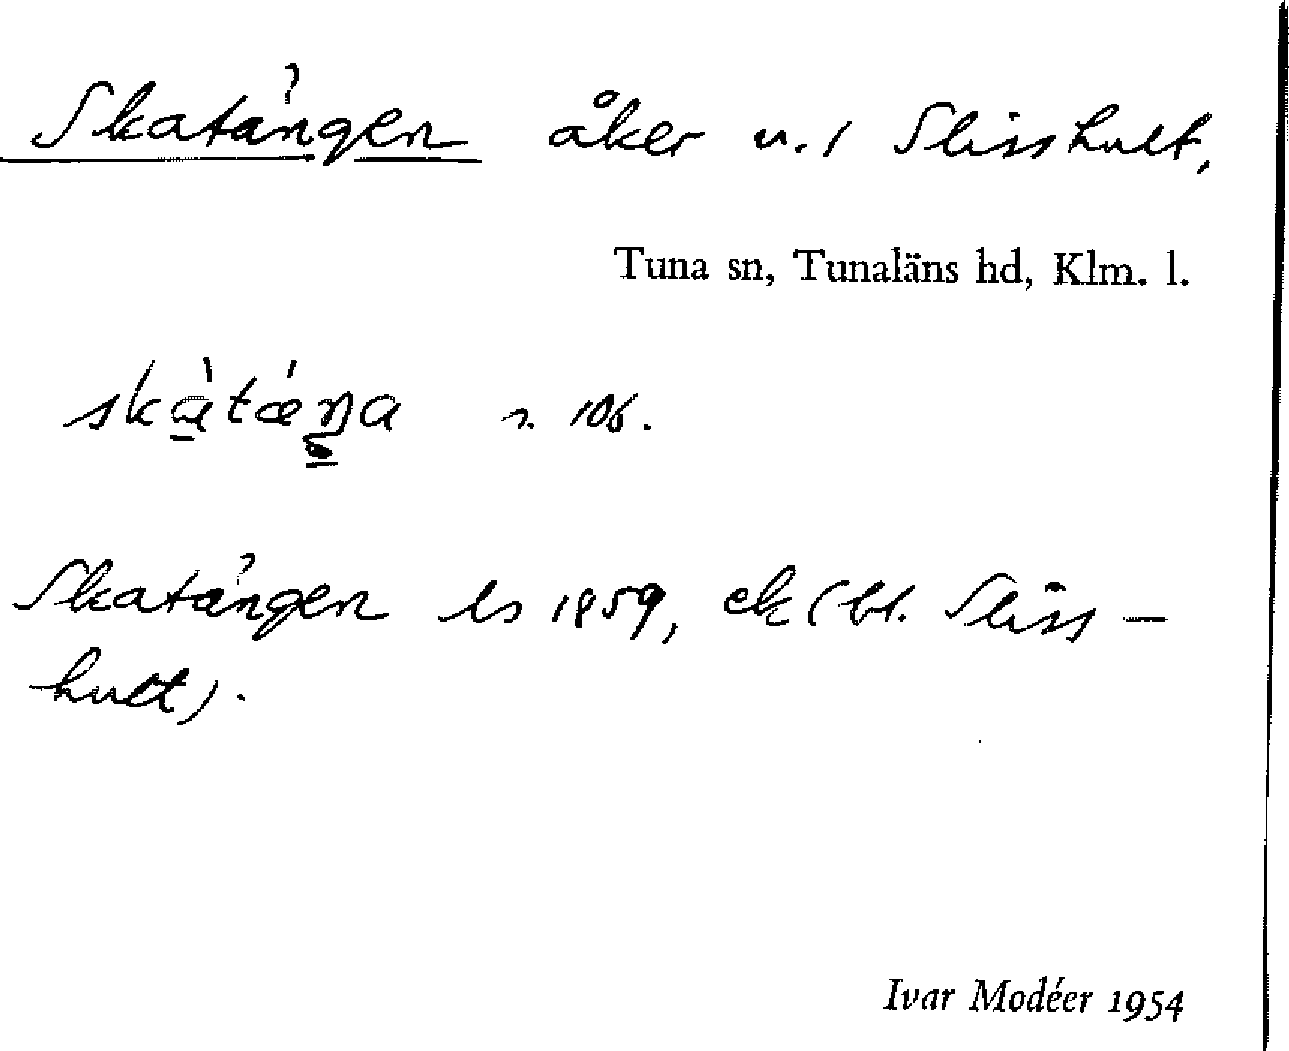 Skatängen åker u. 1 Slisshult,
Tuna sn, Tunaläns hd, Klm. l.
skàtǽŋa s. 106.
Skatängen ls 1859, ek (bl. Sliss-
hult).
Ivar Modéer 1954